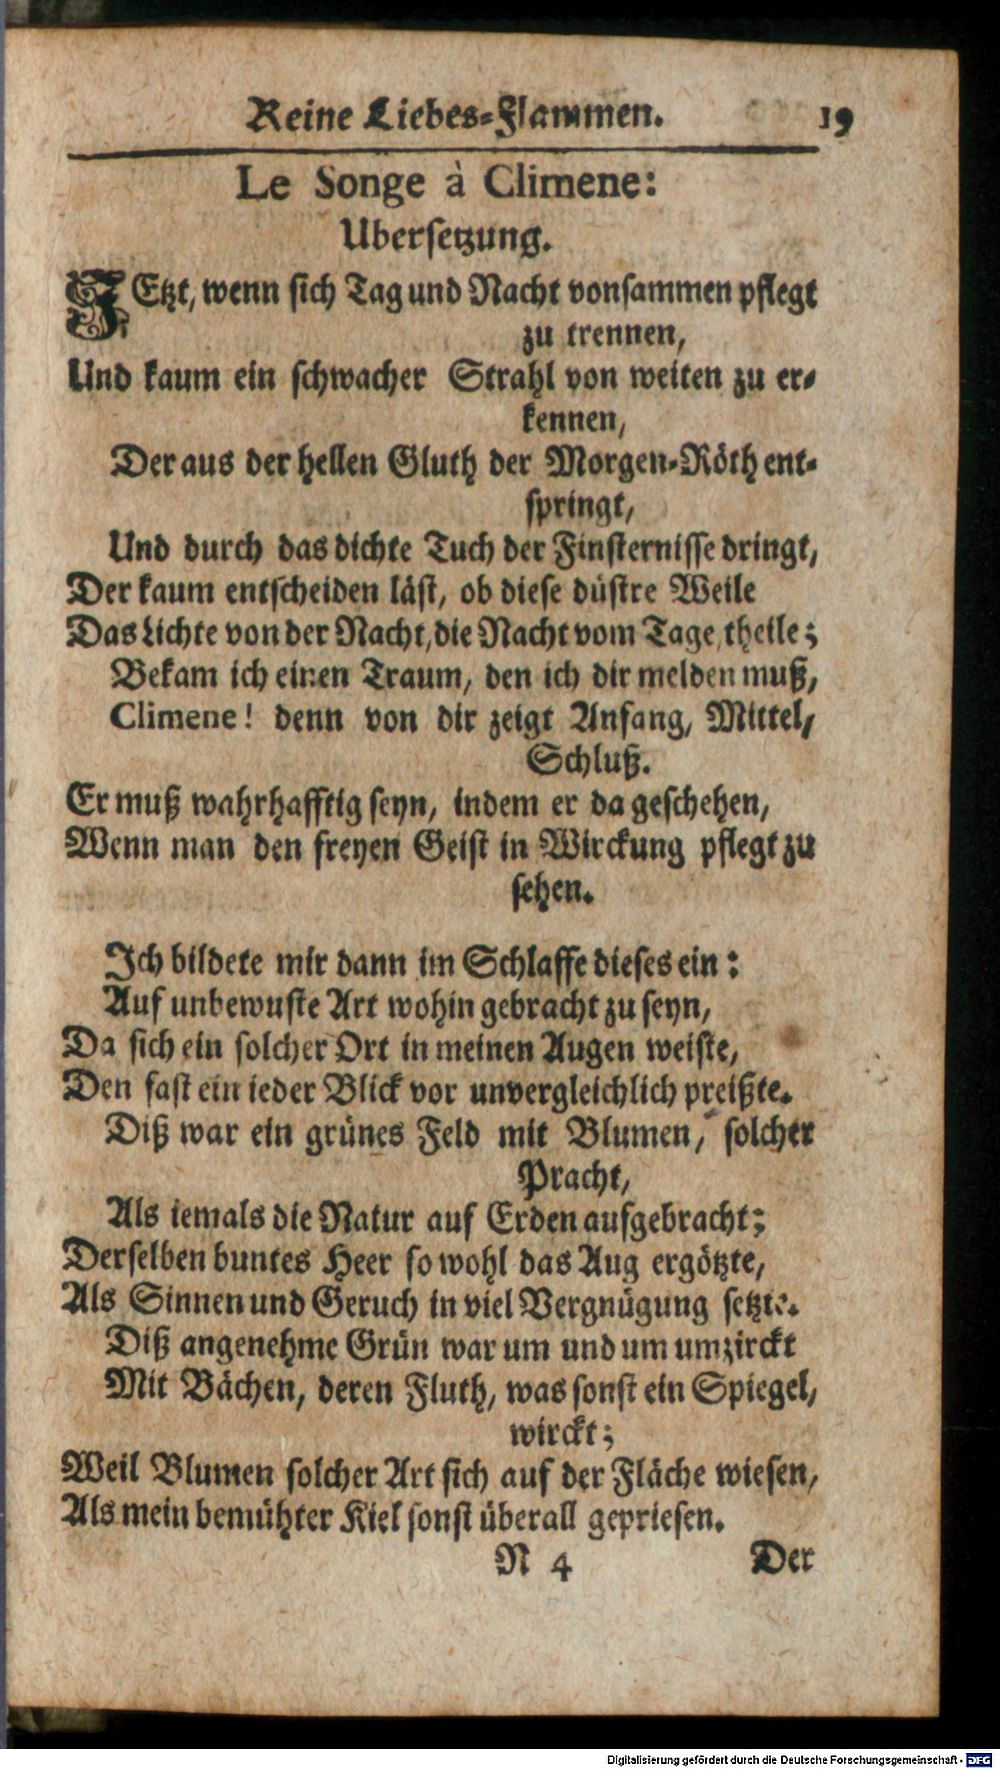 Reine Liebes-Flammen. 19
Le Songe à Climene:
Ubersetzung.
JEtzt, wenn sich Tag und Nacht vonsammen pflegt
zu trennen,
Und kaum ein schwacher Strahl von weiten zu er-
kennen,
Der aus der hellen Gluth der Morgen-Röth ent-
springt,
Und durch das dichte Tuch der Finsternisse dringt,
Der kaum entscheiden läst, ob diese düstre Weile
Das Lichte von der Nacht, die Nacht vom Tage, theile;
Bekam ich einen Traum, den ich dir melden muß,
Climene! denn von dir zeigt Anfang, Mittel,
Schluß.
Er muß wahrhafftig seyn, indem er da geschehen,
Wenn man den freyen Geist in Wirckung pflegt zu
sehen.
Ich bildete mir dann im Schlaffe dieses ein:
Auf unbewuste Art wohin gebracht zu seyn,
Da sich ein solcher Ort in meinen Augen weiste,
Den fast ein ieder Blick vor unvergleichlich preißte.
Diß war ein grünes Feld mit Blumen, solcher
Pracht,
Als iemals die Natur auf Erden aufgebracht;
Derselben buntes Heer so wohl das Aug ergötzte,
Als Sinnen und Geruch in viel Vergnügung setzte.
Diß angenehme Grün war um und um umzirckt
Mit Bächen, deren Fluth, was sonst ein Spiegel,
wirckt;
Weil Blumen solcher Art sich auf der Fläche wiesen,
Als mein bemühter Kiel sonst überall gepriesen.
N 4 Der
Digitalisierung gefördert durch die Deutsche Forschungsgemeinschaft - DFG